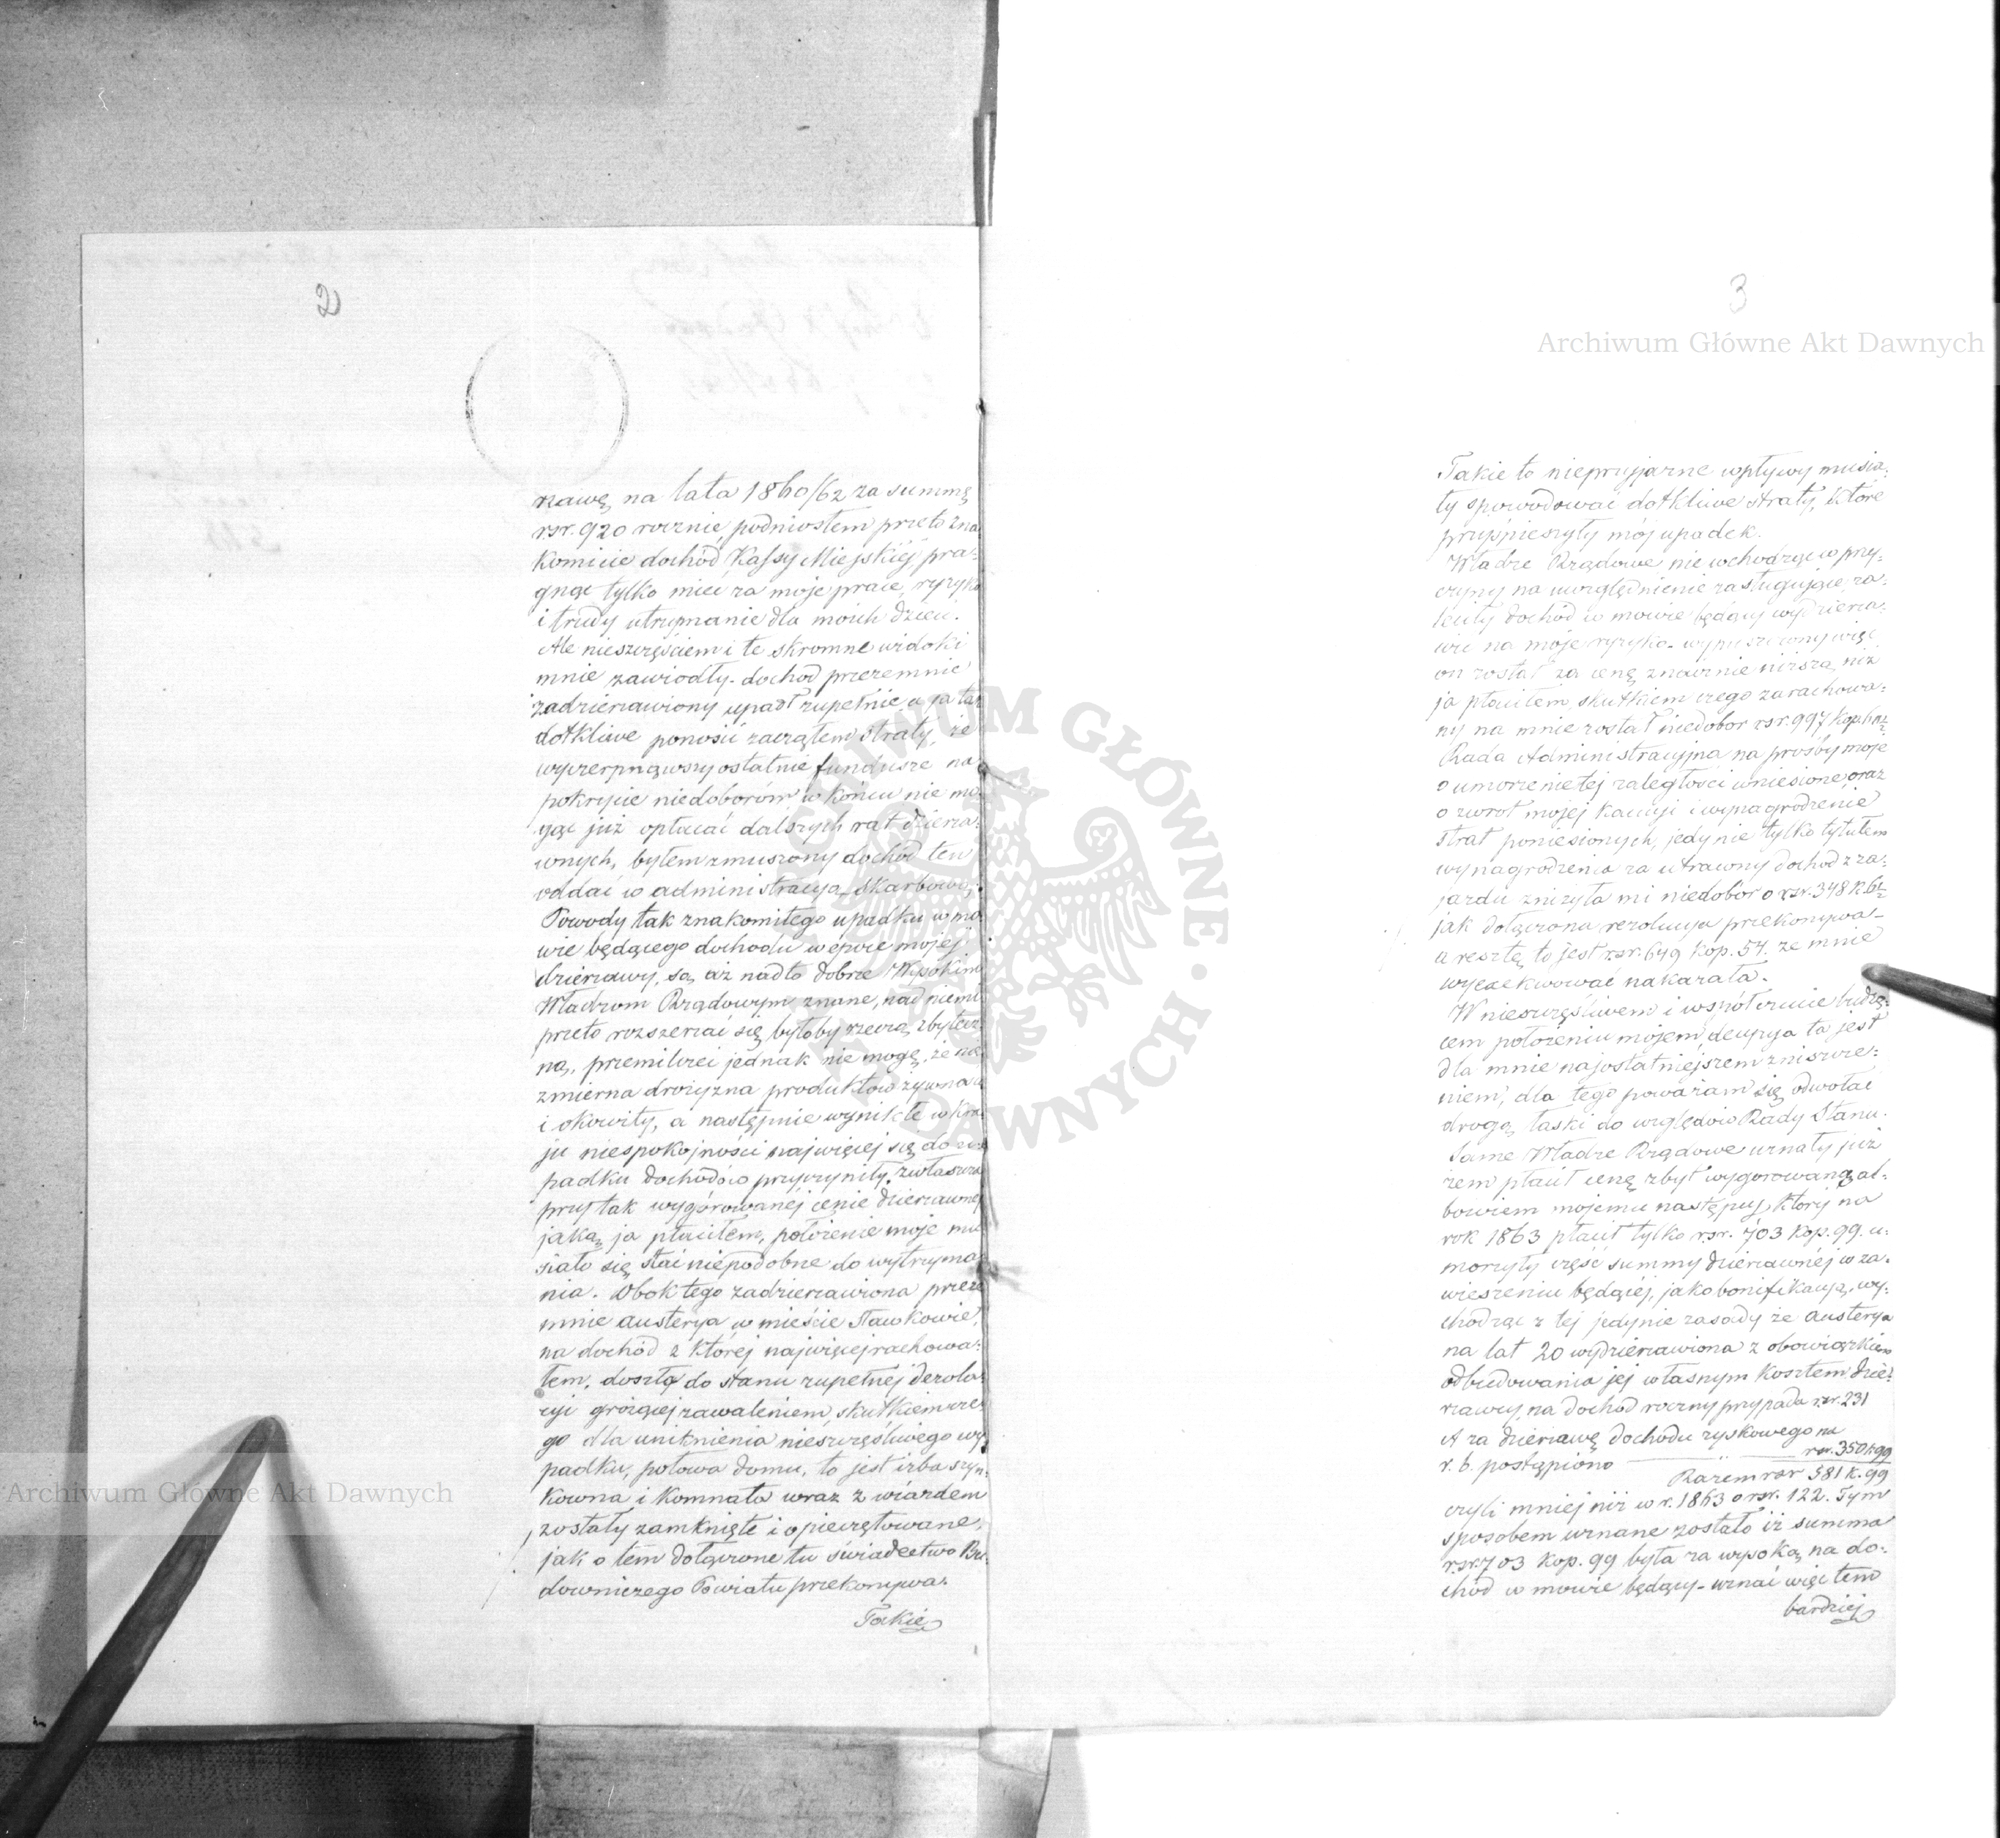 2
rzawę na lata 1860/62 za summę
rsr. 920 rocznie, podniosłem przeto zna
komicie dochód Kassy Miejskiéj, pra-
gnąc tylko mieć za moje prace, ryzyko
i trudy utrzymanie dla moich dzieci.
Ale nieszczęściem i te skromne widoki
mnie zawiodły - dochód przezemnie
zadzierzawiony upadł zupełnie a ja tak
dotkliwe ponosić zacząłem straty, że
wyczerpnąwszy ostatnie fundusze na
pokrycie niedoborów, w końcu nie mo-
gąc już opłacać dalszych rat dzierża-
wnych, byłem zmuszony dochód ten
oddać w administracyą Skarbową.
Powody tak znakomitego upadku w mo
wie będącego dochodu w epoce mojéj
dzierżawy, są aż nadto dobrze Wysokim
Władzom Rządowym znane, nad niemi
przeto rozszerzać się byłoby rzeczą zbytecz-
ną, przemilczeć jednak nie mogę, że nie
zmierna drożyzna produktów żywnoś
i okowity, a następnie wynikłe w kra
ju niespokojności najwięcej się do u
padku dochodów przyczyniły, zwłaszcza
przy tak wygórowanéj cenie dzierżawnéj
jaką ja płaciłem, położenie moje mu
siało się stać niepodobne do wytrzyma-
nia. Obok tego zadzierżawiona przeze
mnie austerya w mieście Sławkowie,
na dochód z któréj najwięcej rachowa-
łem, doszła do stanu zupełnéj dezola-
cyi grożącéj zawaleniem, skutkiem cze
go dla uniknienia nieszczęśliwego wy
padku, połowa domu, to jest izba szyn-
kowna i komnata wraz z wiazdem
zostały zamknięte i opieczętowane,
jak o tém dołączone tu świadectwo Bu-
downiczego Powiatu przekonywa.
Takie
3
Archiwum Główne Akt Dawnych
Takie to nieprzyjazne wpływy musia-
ły spowodować dotkliwe straty, które
przyśpieszyły mój upadek.
Władze Rządowe nie wchodząc w przy-
czyny na uwzględnienie zasługujące, za-
kiuły dochód w mowie będący wydzierża-
wić na moje ryzyko - wypuszczony więc
on został za cenę znacznie niższą niż
ja płaciłem, skutkiem czego zarachowa-
ny na mnie został niedobór rsr. 997 kop. 60½
Rada Administracyjna na prośby moje
o umorzenie téj zaległości wniesione, oraz
o zwrot mojéj kaucyi i wynagrodzenie
strat poniesionych, jedynie tylko tytułem
wynagrodzenia za utracony dochód z za-
jazdu zniżyła mi niedobór o rsr. 348 k. 6½
jak dołączona rezolucya przekonywa -
a resztę to jest rsr. 649 kop. 54. ze mnie
wyexekwować nakazała.
W nieszczęśliwem i współczucie budzą-
cem położeniu mojem, decyzya ta jest
dla mnie najostatniejszem zniszcze-
niem, dla tego poważam się odwołać
drogą łaski do względów Rady Stanu.
Same Władze Rządowe uznały już
żem płacił cenę zbyt wygórowaną, al-
bowiem mojemu następcy, który na
rok 1863 płacił tylko rsr. 703 kop. 99. u-
morzyły część summy dzierżawnéj w za-
wieszeniu będącéj, jako bonifikacyą, wy-
chodząc z téj jedynie zasady że austerya
na lat 20 wydzierżawiona z obowiązkiem
odbudowania jéj własnym kosztem dzie-
rżawcy, na dochód roczny przypada rsr. 231
A za dzierżawę dochodu zyskowego na
r. b. postąpiono rsr. 350 k. 99
Razem rsr 581 k. 99
czyli mniéj niż w r. 1863 o rsr. 122. Tym
sposobem uznane zostało iż summa
rsr. 703 kop. 99 była za wysoką na do-
chód w mowie będący - uznać więc tem
bardziéj
ARCHIWUM GŁÓWNE AKT DAWNYCH
Archiwum Główne Akt Dawnych